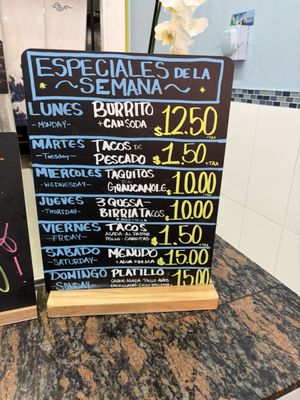 ESPECIALES DE LA
SEMANA
LUNES BURRITO
-MONDAY- + CAN SODA $12.50
+TAX
MARTES TACOS DE
-Tuesday- PESCADO $1.50 +TAX
MIERCOLES TAQUITOS
-WEDNESDAY- $10.00
JUEVES 3 QUESA-
-THURSDAY- BIRRIA TACOS $10.00
VIERNES TACOS $1.50
-FRIDAY- ASADA AL PASTOR
POLLO
SABADO MENUDO $15.00
-SATURDAY-
DOMINGO PLATILLO $15.00
-SUNDAY-